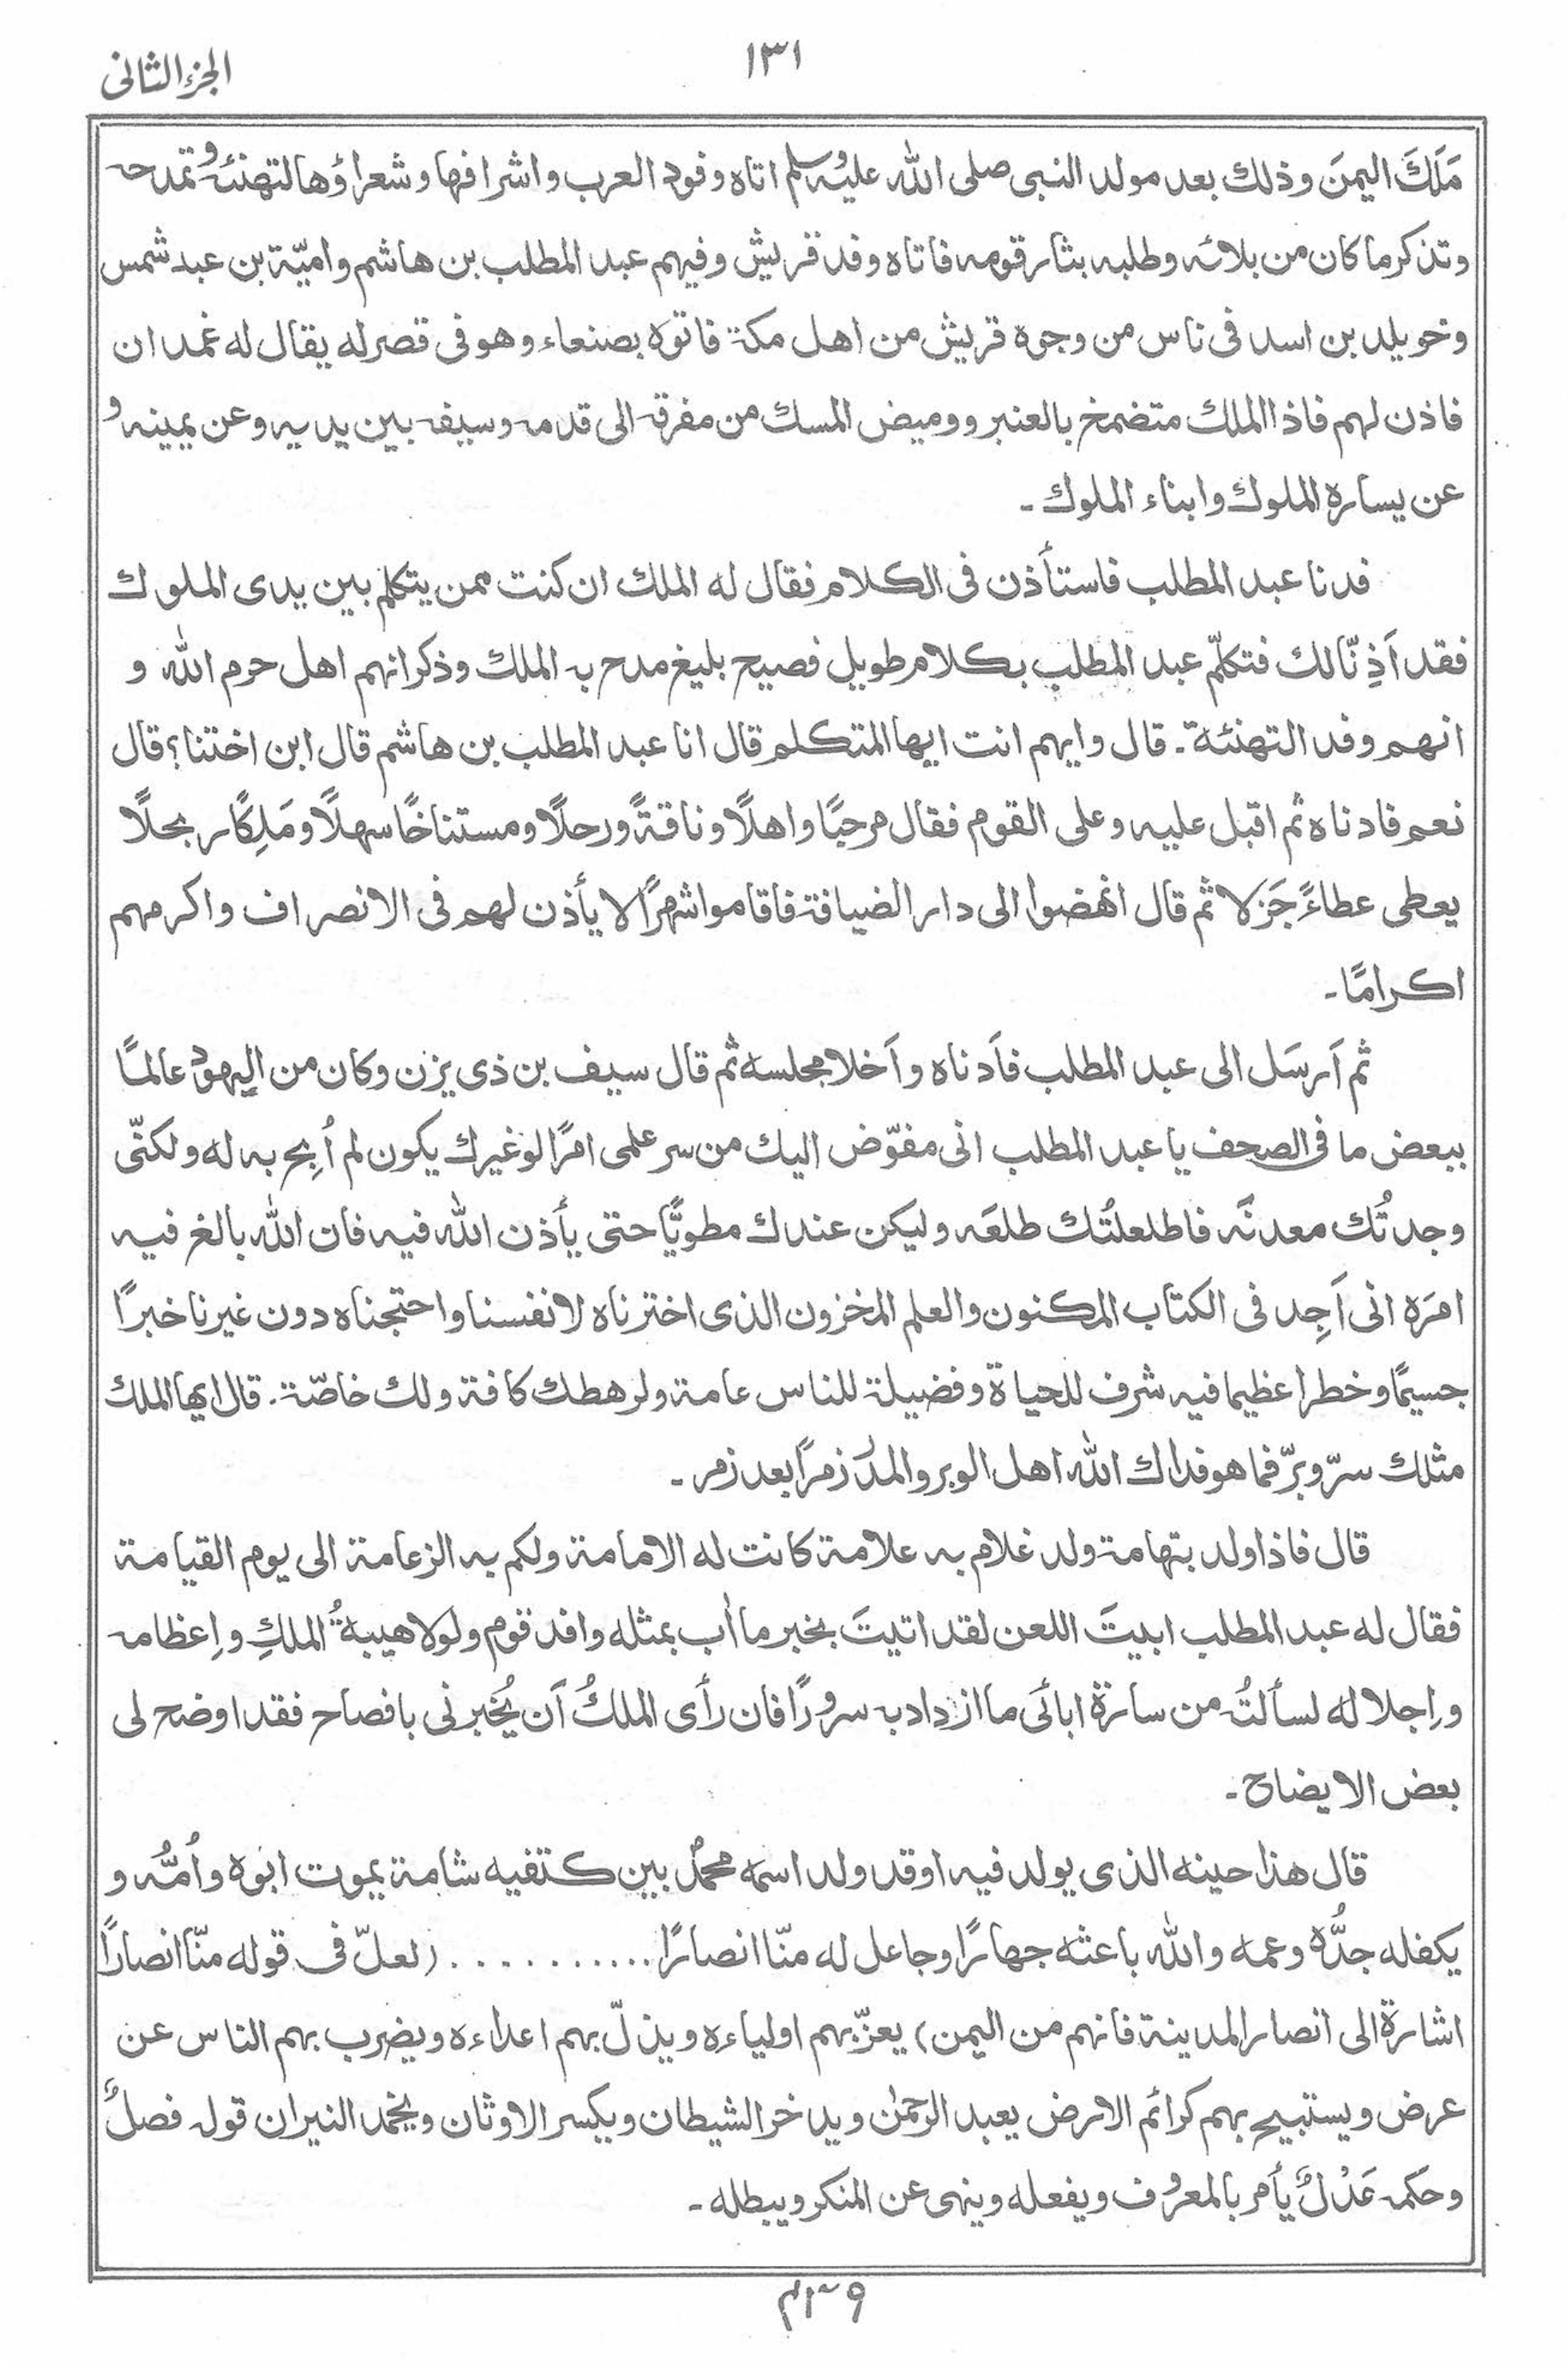 ١٣١
الجزء الثانى
مَلَكَ اليمنَ وذلك بعد مولد النبى صلى الله عليه وسلم اتاه وفود العرب واشرافها وشعراؤها لتهنئه وتمدحه
وتذكر ما كان من بلائه وطلبه بثار قومه فاتاه وفد قريش وفيهم عبد المطلب بن هاشم واميّة بن عبد شمس
وخويلد بن اسد فى ناس من وجوه قريش من اهل مكة فاتوه بصنعاء وهو فى قصر له يقال له غمدان
فاذن لهم فاذا الملك متضمخ بالعنبر ووميض المسك من مفرقه الى قدمه وسيفه بين يديه وعن يمينه و
عن يساره الملوك وابناء الملوك ـ
فدنا عبد المطلب فاستأذن فى الكلام فقال له الملك ان كنت ممن يتكلم بين يدى الملوك
فقد اَذِنّا لك فتكلّم عبد المطلب بكلام طويل فصيح بليغ مدح به الملك وذكر انهم اهل حرم الله و
انهم وفد التهنئة ـ قال وايهم انت ايها المتكلم قال انا عبد المطلب بن هاشم قال ابن اختنا؟ قال
نعم فادناه ثم اقبل عليه وعلى القوم فقال مرحبًا واهلًا وناقةً ورحلًا ومستناخًا سهلًا ومَلِكًا ربحلًا
يعطى عطاءً جَزلا ثم قال انهضوا الى دار الضيافة فاقاموا شهرًا لا يأذن لهم فى الانصراف واكرمهم
اكرامًا ـ
ثم اَرسَل الى عبد المطلب فاَدناه واَخلا مجلسه ثم قال سيف بن ذى يزن وكان من اليهود عالمًا
ببعض ما فى الصحف يا عبد المطلب انى مفوّض اليك من سر علمى امرًا لو غيرك يكون لم اُبِح به له ولكنّى
وجدتُك معدنَه فاطلعلتُك طلعَه وليكن عندك مطويًّا حتى يأذن الله فيه فان الله بالغ فيه
امرَه انى اَجِد فى الكتاب المكنون والعلم المخزون الذى اخترناه لانفسنا واحتجناه دون غيرنا خبرًا
جسيمًا وخطرا عظيما فيه شرف للحياة وفضيلة للناس عامة ولرهطك كافة ولك خاصّة. قال ايها الملك
مثلك سرّ وبرّ فما هو فداك الله اهل الوبر والمدر زمرًا بعد زمر ـ
قال فاذا ولد بتهامة ولد غلام به علامة كانت له الامامة ولكم به الزعامة الى يوم القيامة
فقال له عبد المطلب ابيتَ اللعن لقد اتيتَ بخبر ما اٰب بمثله وافد قوم ولولا هيبةُ الملكِ واِعظامه
واِجلاله لسألتُ من سارة ابائى ما ازداد به سرورًا فان رأى الملكُ اَن يُخبرنى بافصاح فقد اوضح لى
بعض الايضاح ـ
قال هذا حينه الذى يولد فيه او قد ولد اسمه محمدٌ بين كتفيه شامة يموت ابوه واُمُّه و
يكفله جدُّه وعمه والله باعثه جهارًا وجاعل له منّا انصارًا ........... (لعلّ فى قوله منّا انصارًا
اشارة الى انصار المدينة فانهم من اليمن) يعزّ بهم اولياءه ويذلّ بهم اعداءه ويضرب بهم الناس عن
عرض ويستبيح بهم كرائم الارض يعبد الرحمٰن ويدخر الشيطان ويكسر الاوثان ويخمد النيران قوله فصلٌ
وحكمه عَدْلٌ يأمر بالمعروف ويفعله وينهى عن المنكر ويبطله ـ